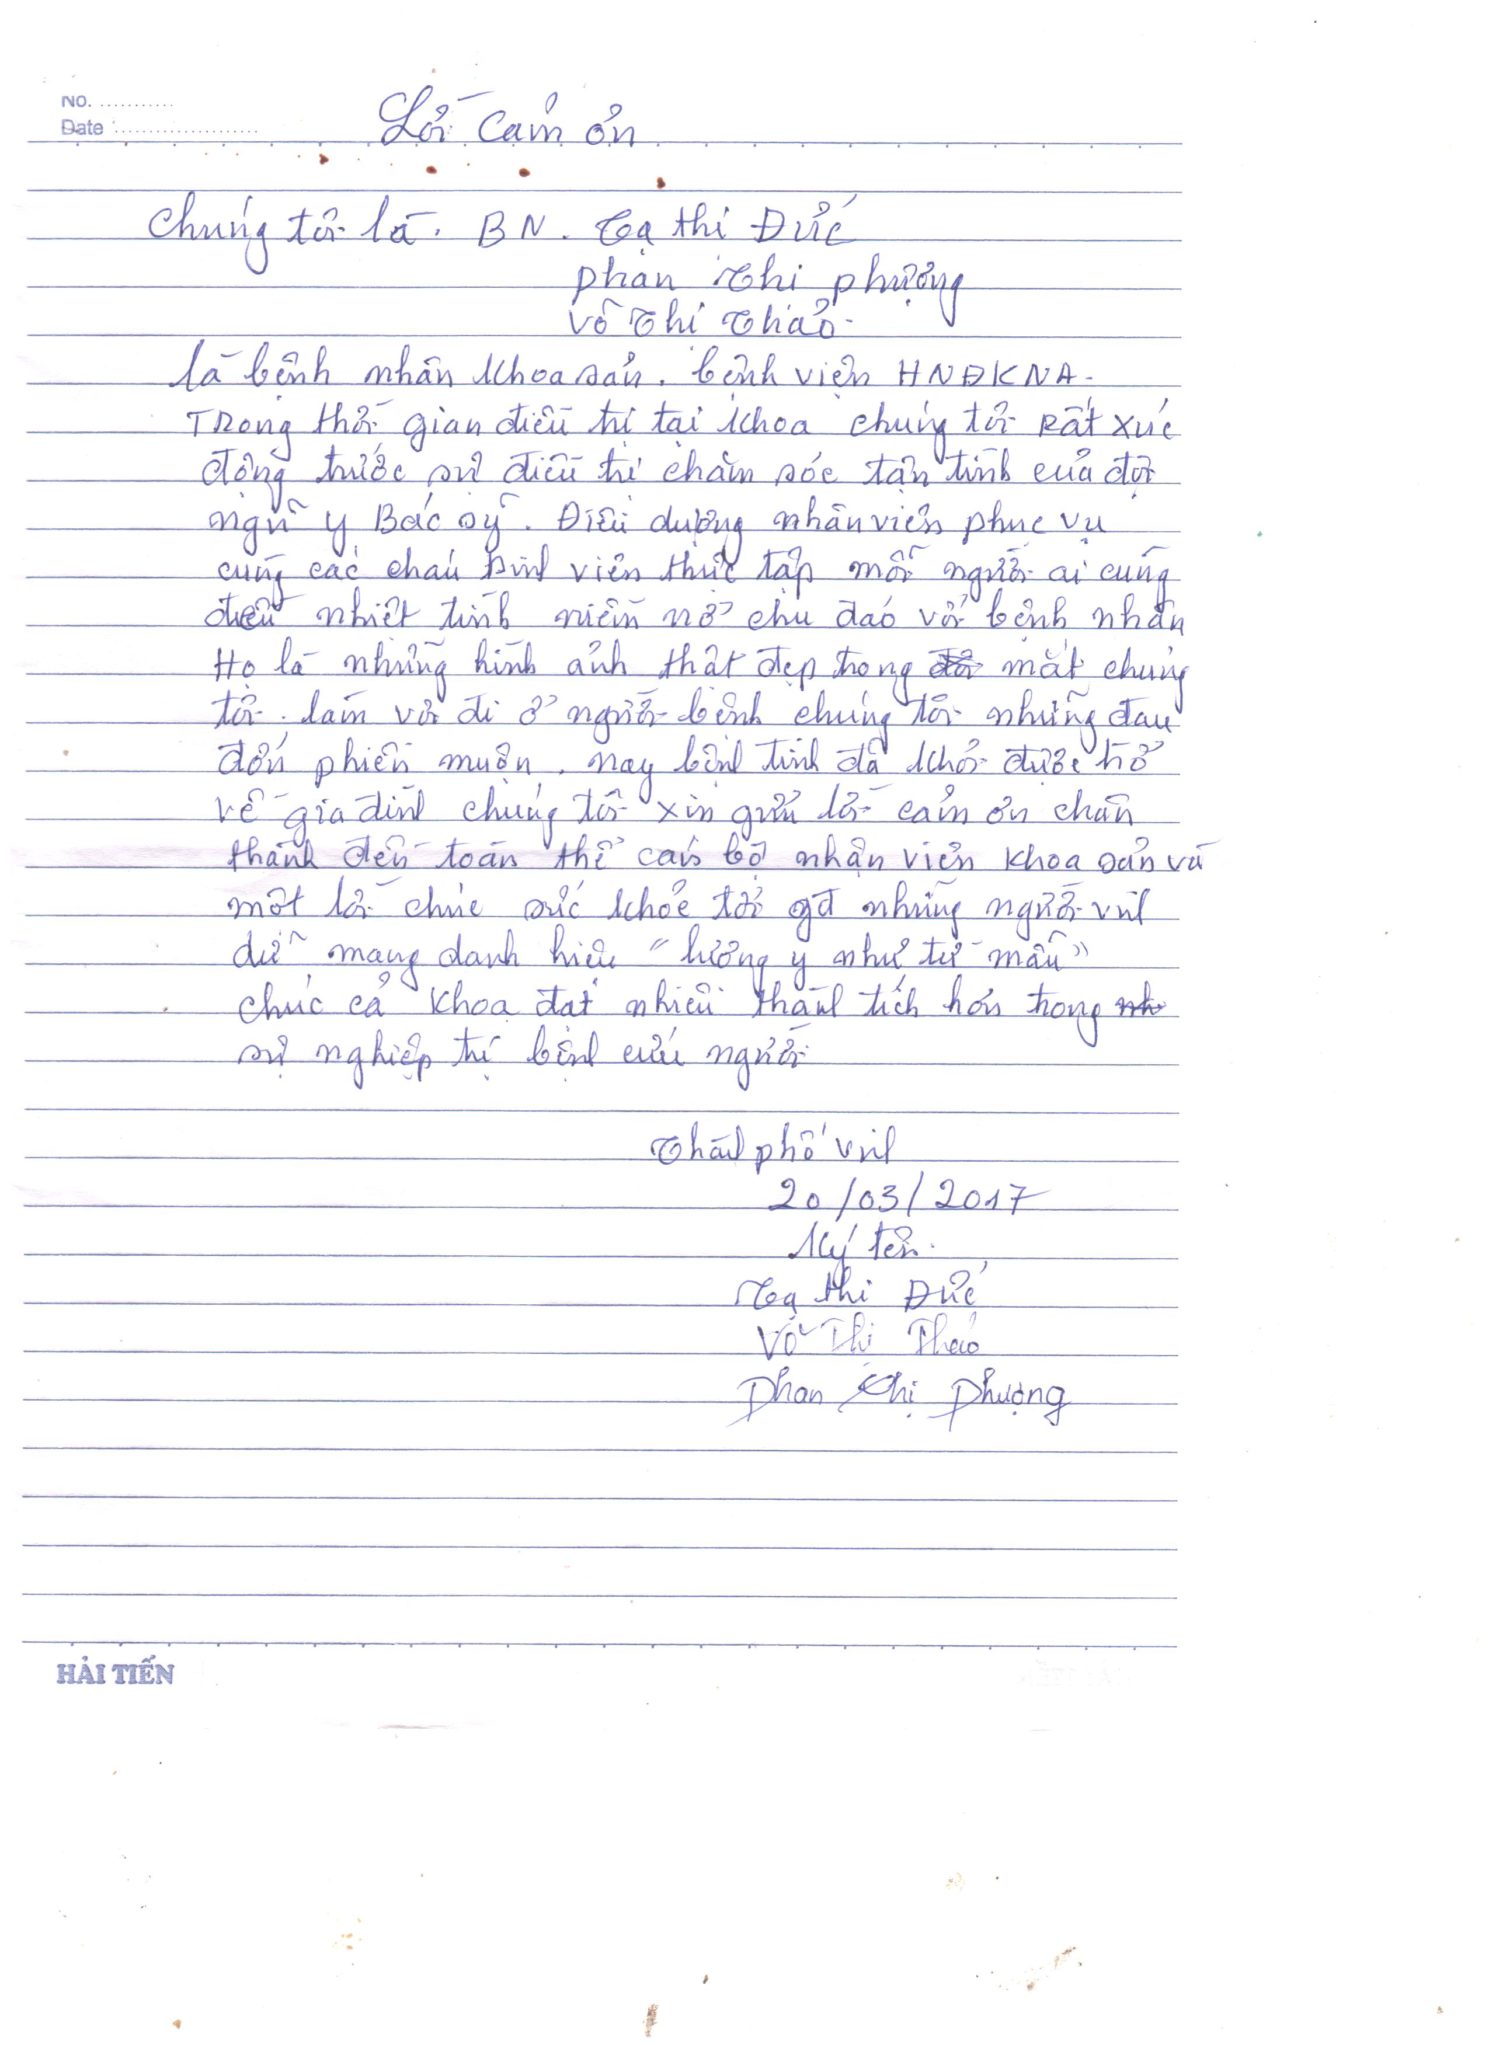 No. ............
Date ........................
Lời cảm ơn
Chúng tôi là. BN. Tạ thị Đức
phan Thị phượng
Võ Thị Thảo.
là bệnh nhân khoa sản. bệnh viện HNĐKNA.
Trong thời gian điều trị tại khoa chúng tôi Rất xúc
động trước sự điều trị chăm sóc tận tình của đội
ngũ y Bác sỹ. Điều dưỡng nhân viên phục vụ
cùng các cháu sinh viên thực tập mỗi người ai cũng
đều nhiệt tình niềm nở chu đáo với bệnh nhân
Họ là những hình ảnh thật đẹp trong mắt chúng
tôi. làm vơi đi ở người bệnh chúng tôi những đau
đớn phiền muộn. nay bệnh tình đã khỏi được trở
về gia đình chúng tôi xin gửi lời cảm ơn chân
thành đến toàn thể cán bộ nhân viên khoa sản và
một lời chúc sức khỏe tới gđ những người vinh
dự mang danh hiệu "lương y như từ mẫu"
chúc cả khoa đạt nhiều thành tích hơn trong
sự nghiệp trị bệnh cứu người
Thành phố vinh
20/03/2017
Ký tên.
Tạ thị Đức
Võ Thị Thảo
Phan Thị Phượng
HẢI TIẾN